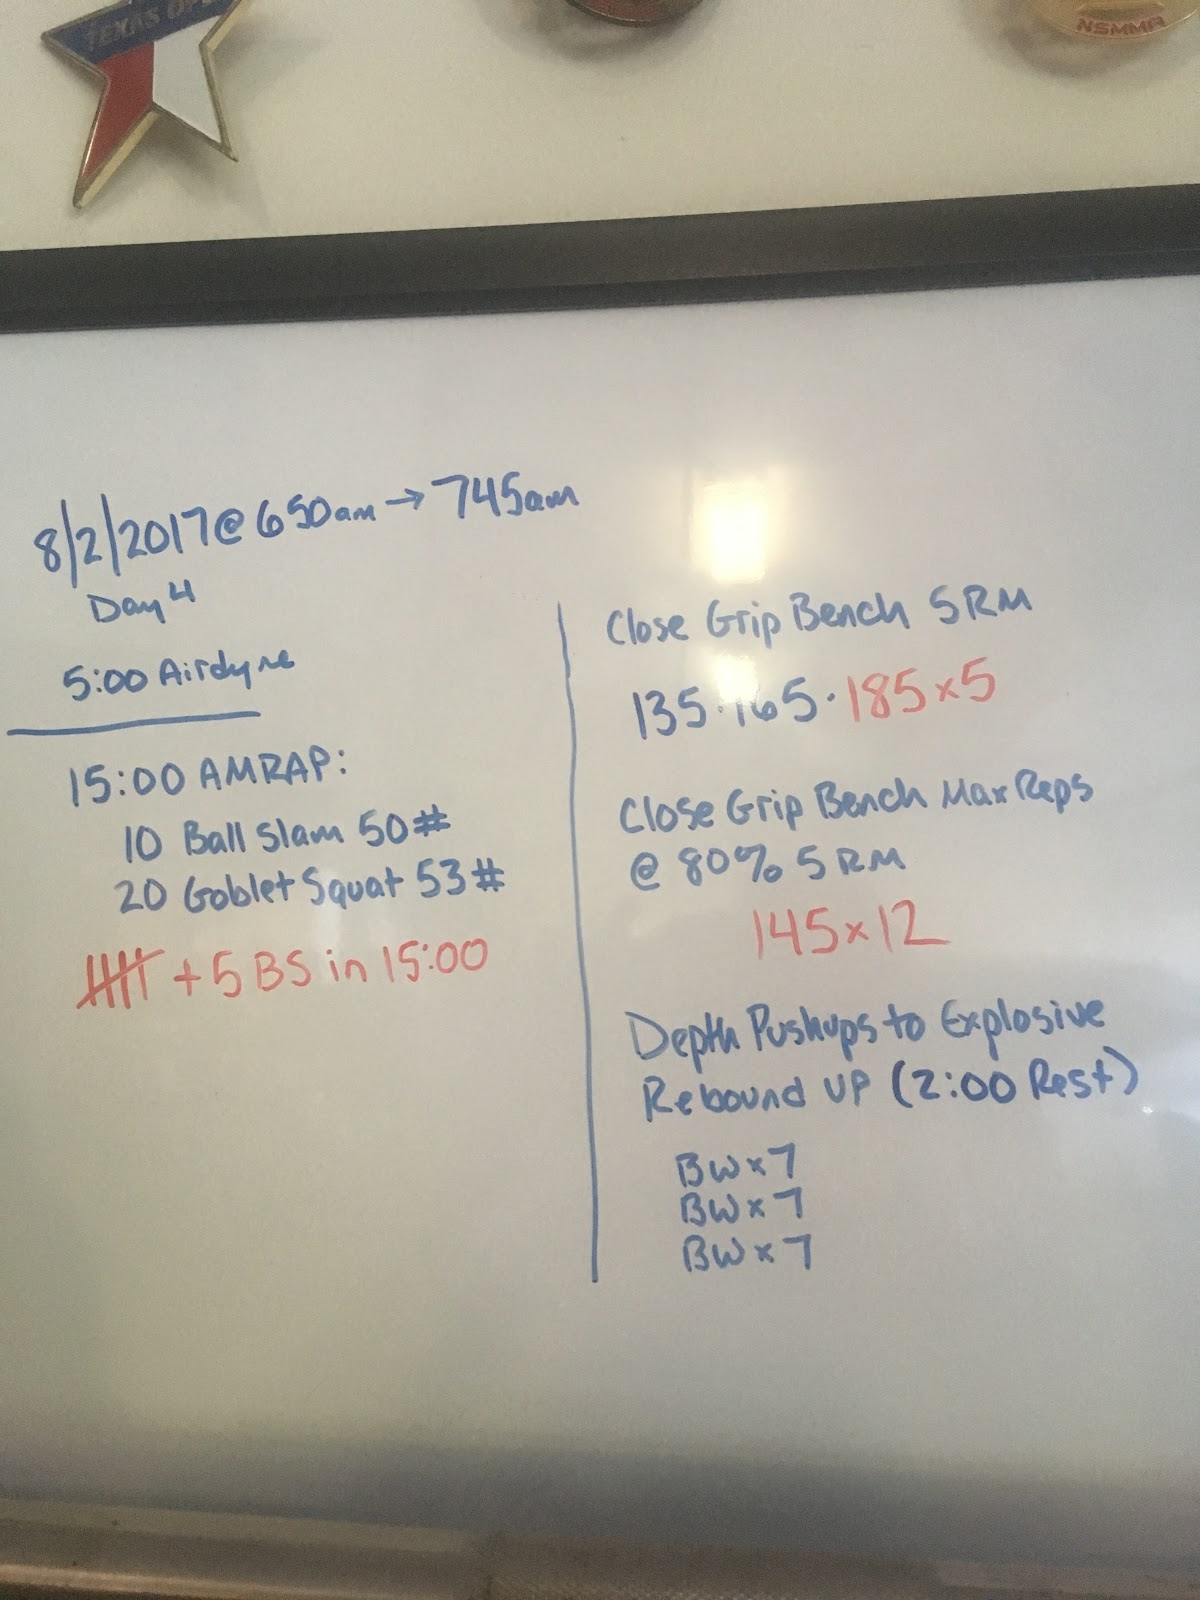 TEXAS OP
NSMMA
8/2/2017 @ 650am → 745am
Day 4
5:00 Airdyne
15:00 AMRAP:
10 Ball Slam 50#
20 Goblet Squat 53#
+ 5 BS in 15:00
Close Grip Bench 5RM
135 · 165 · 185x5
Close Grip Bench Max Reps
@ 80% 5RM
145x12
Depth Pushups to Explosive
Rebound UP (2:00 Rest)
BW x 7
BW x 7
BW x 7